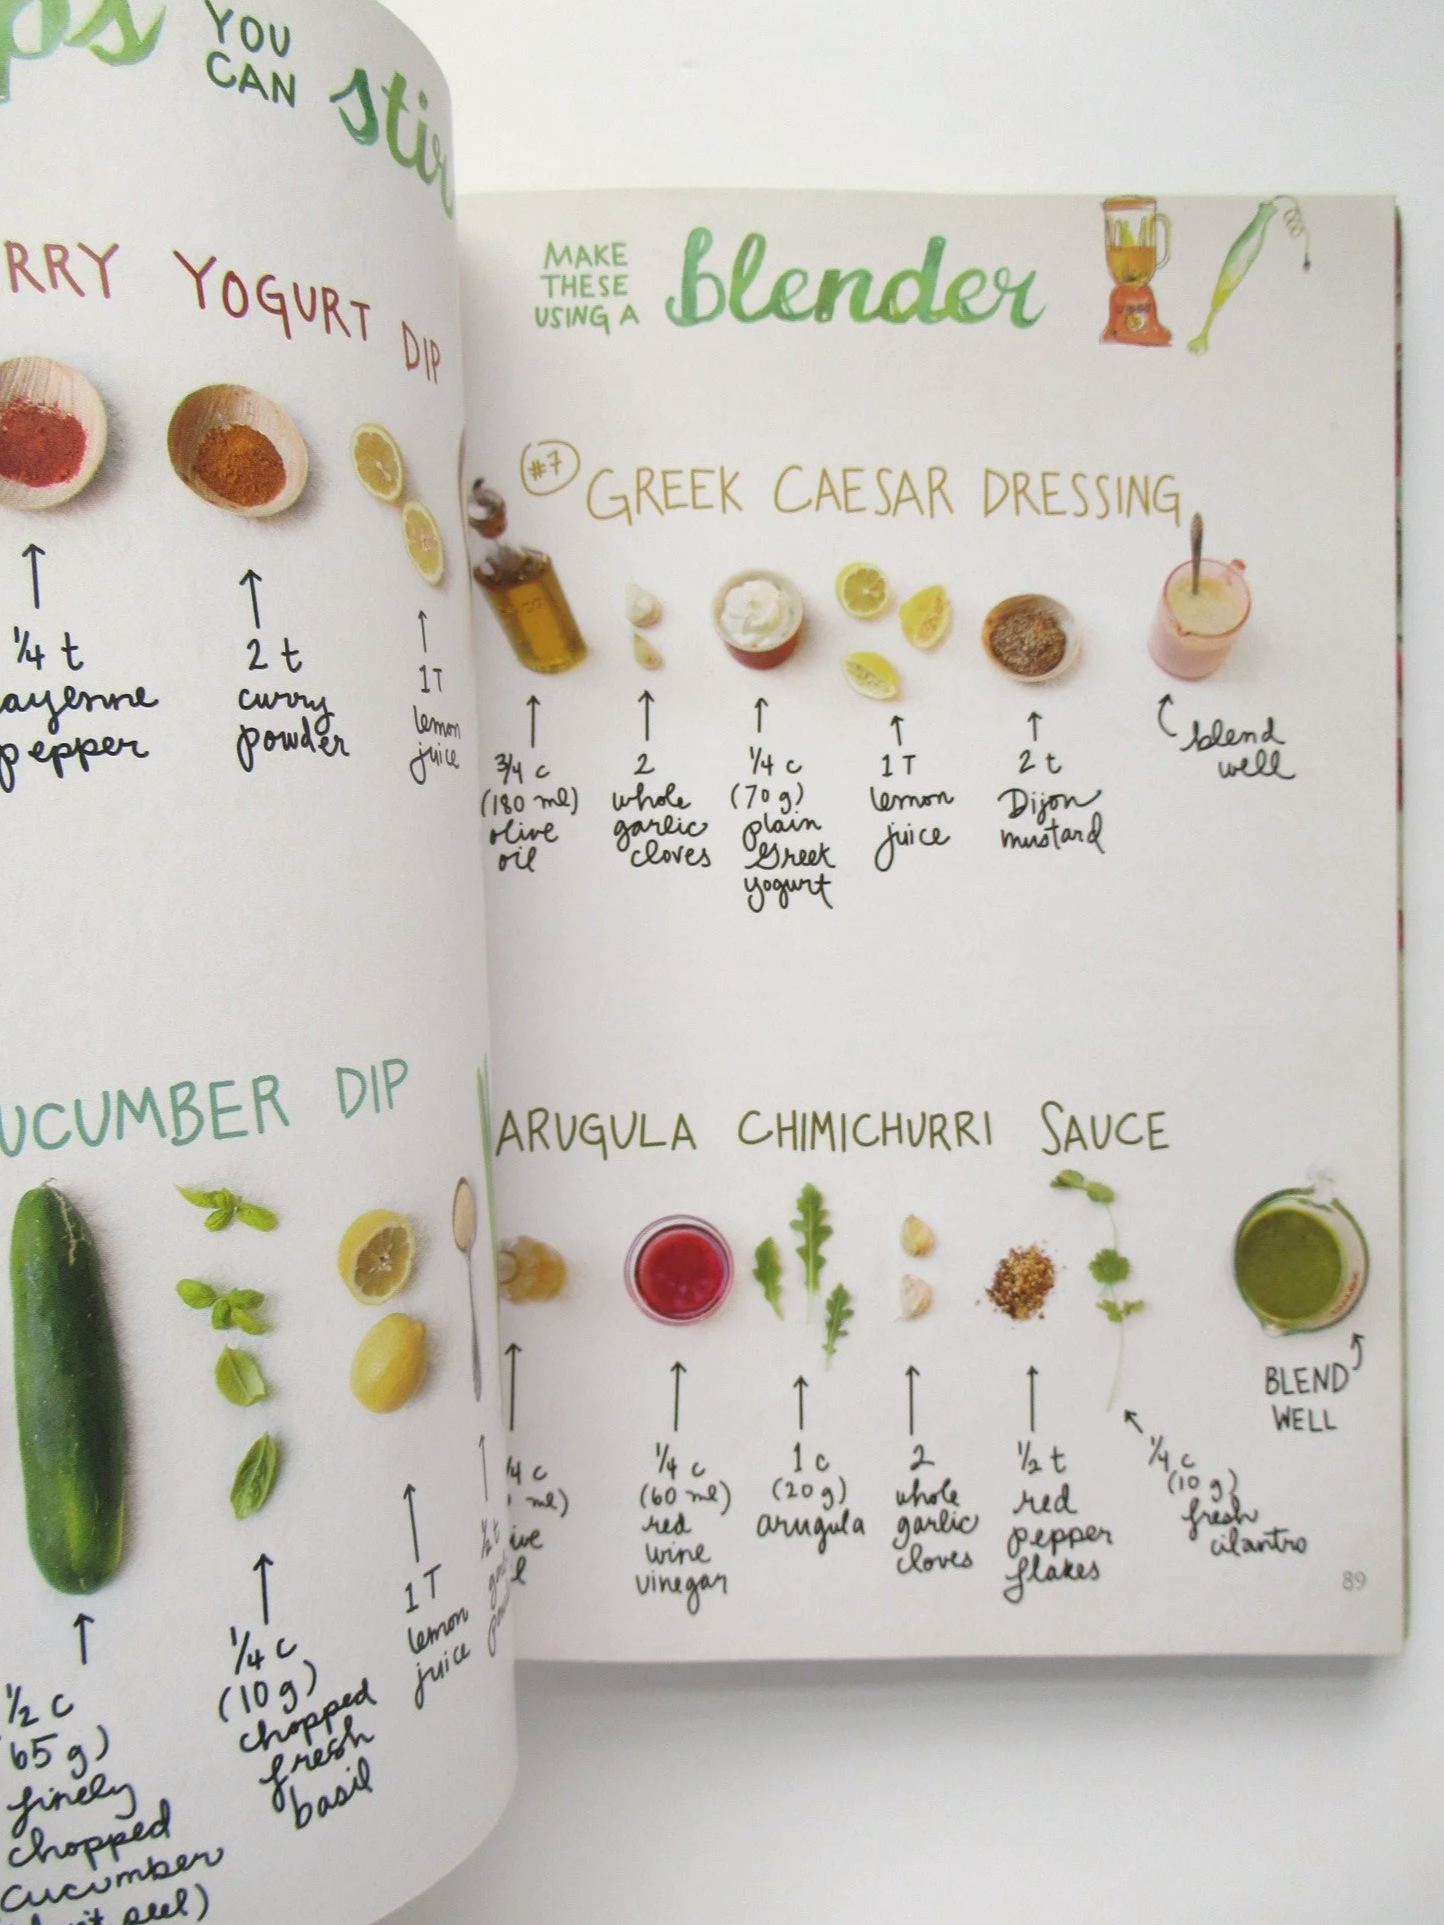 YOU
CAN
stir
YOGURT DIP
1/4 t
pepper
2 t
curry
powder
1T
lemon
juice
DIP
1/2 c
finely
chopped
cucumber
1/4 c
(10 g)
chopped
fresh
basil
1 T
lemon
juice
1/2 t
MAKE
THESE
USING A
blender
#7
GREEK CAESAR DRESSING
3/4 c
(180 ml)
olive
oil
2
whole
garlic
cloves
1/4 c
(70 g)
plain
Greek
yogurt
1 T
lemon
juice
2 t
Dijon
mustard
blend
well
ARUGULA CHIMICHURRI SAUCE
1/4 c
(60 ml)
red
wine
vinegar
1 c
(20 g)
arugula
2
whole
garlic
cloves
1/2 t
red
pepper
flakes
1/4 c
(10 g)
fresh
cilantro
BLEND
WELL
89